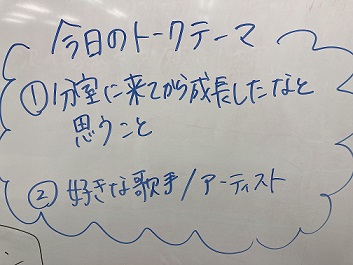 今日のトークテーマ
①分室に来てから成長したなと
思うこと
②好きな歌手/アーティスト